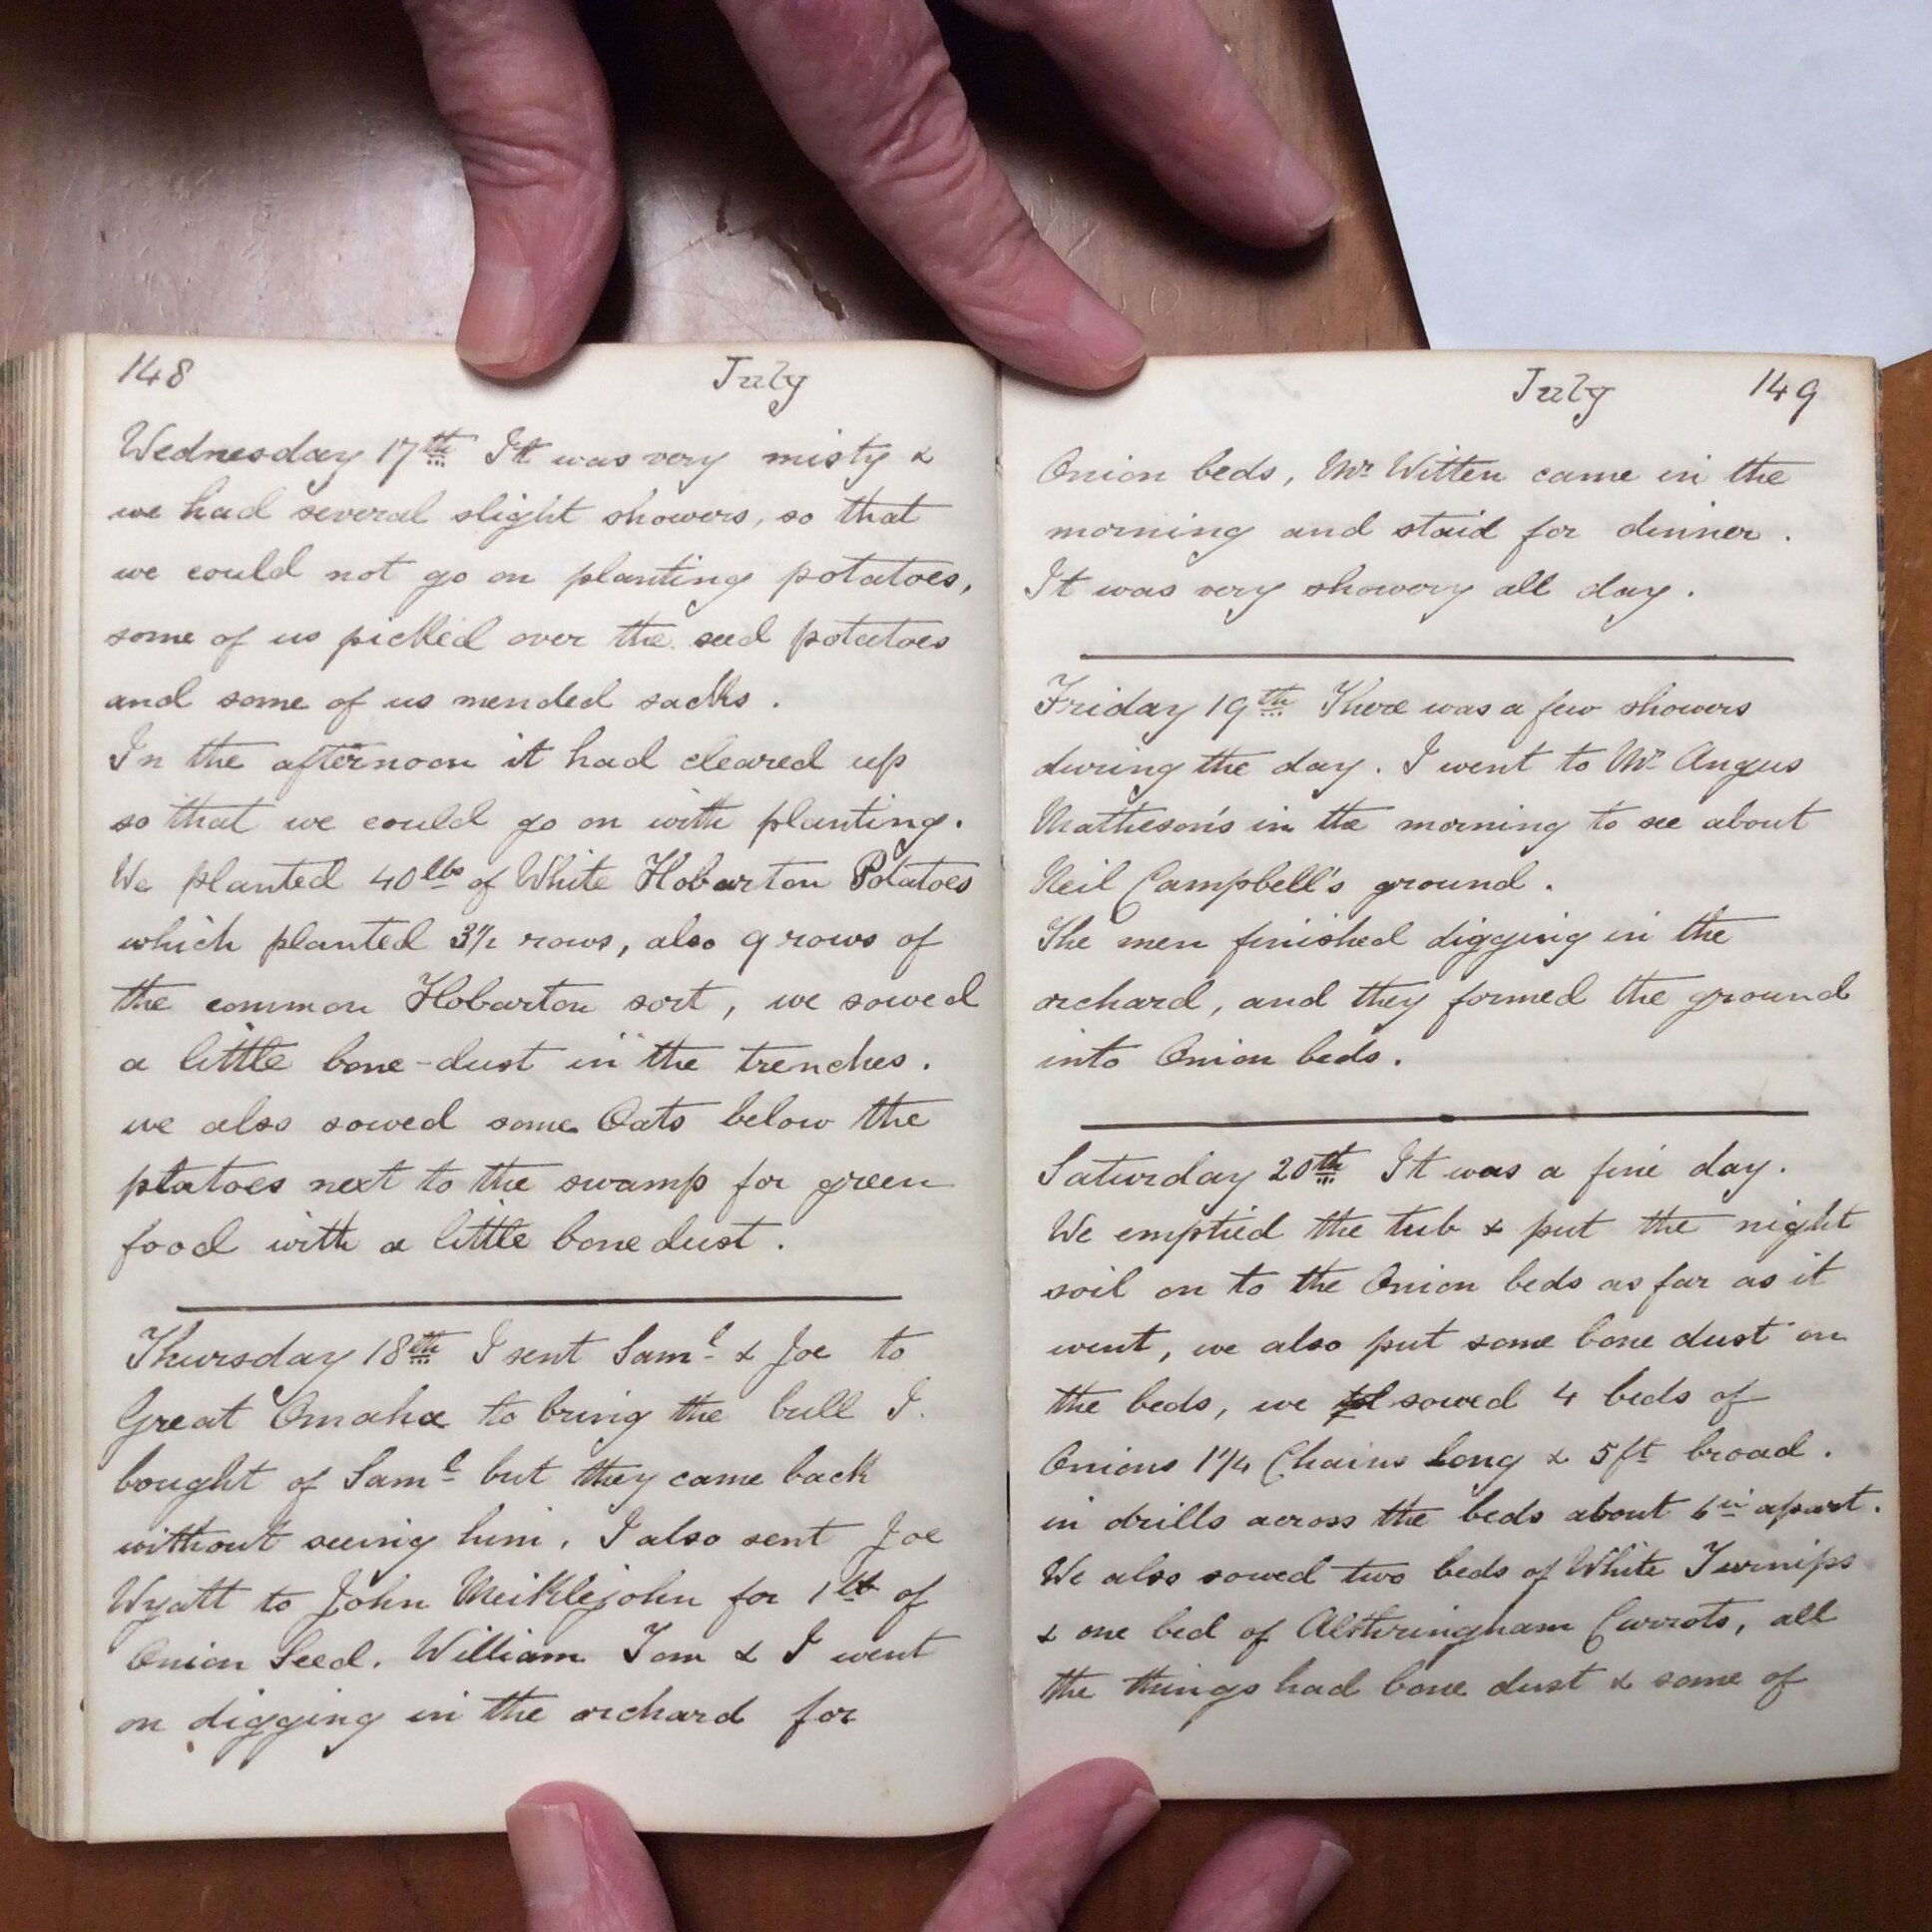 148 July
Wednesday 17th It was very misty &
we had several slight showers, so that
we could not go on planting potatoes,
some of us picked over the seed potatoes
and some of us mended sacks.
In the afternoon it had cleared up
so that we could go on with planting.
We planted 40 lbs of White Hobarton Potatoes
which planted 3½ rows, also 9 rows of
the common Hobarton sort, we sowed
a little bone-dust in the trenches.
we also sowed some Oats below the
ptatoes next to the swamp for green
food with a little bone dust.
Thursday 18th I sent Saml & Joe to
Great Omaha to bring the bull I
bought of Saml but they came back
without seeing him. I also sent Joe
Wyatt to John Meiklejohn for 1 lb of
Onion Seed. William Tom & I went
on digging in the orchard for
July 149
Onion beds, Mr Witten came in the
morning and staid for dinner.
It was very showery all day.
Friday 19th There was a few showers
during the day. I went to Mr Angus
Matheson's in the morning to see about
Neil Campbell's ground.
The men finished digging in the
orchard, and they formed the ground
into Onion beds.
Saturday 20th It was a fine day.
We emptied the tub & put the night
soil on to the Onion beds as far as it
went, we also put some bone dust on
the beds, we sowed 4 beds of
Onions 1¼ Chains long & 5 ft broad.
in drills across the beds about 6 in apart.
We also sowed two beds of White Turnips
& one bed of Althringham Carrots, all
the things had bone dust & some of